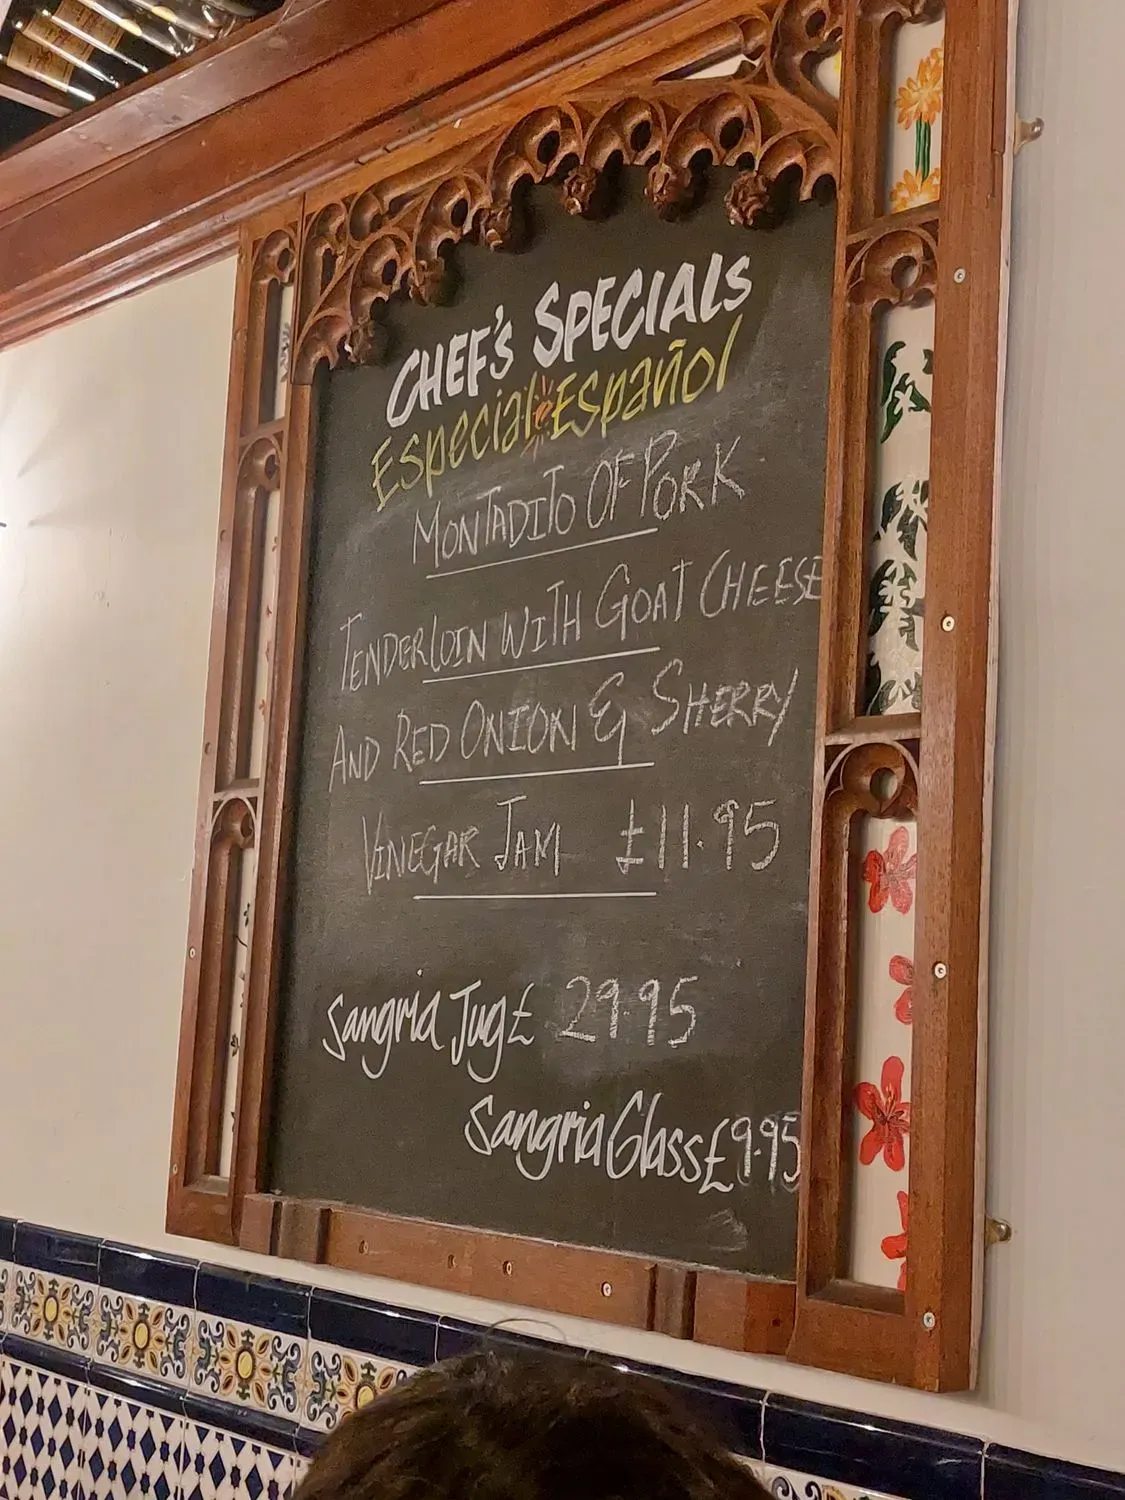 CHEF'S SPECIALS
Especial Español
MONTADITO OF PORK
TENDERLOIN WITH GOAT CHEESE
AND RED ONION & SHERRY
VINEGAR JAM £11.95
Sangria Jug £ 29.95
Sangria Glass £9.95